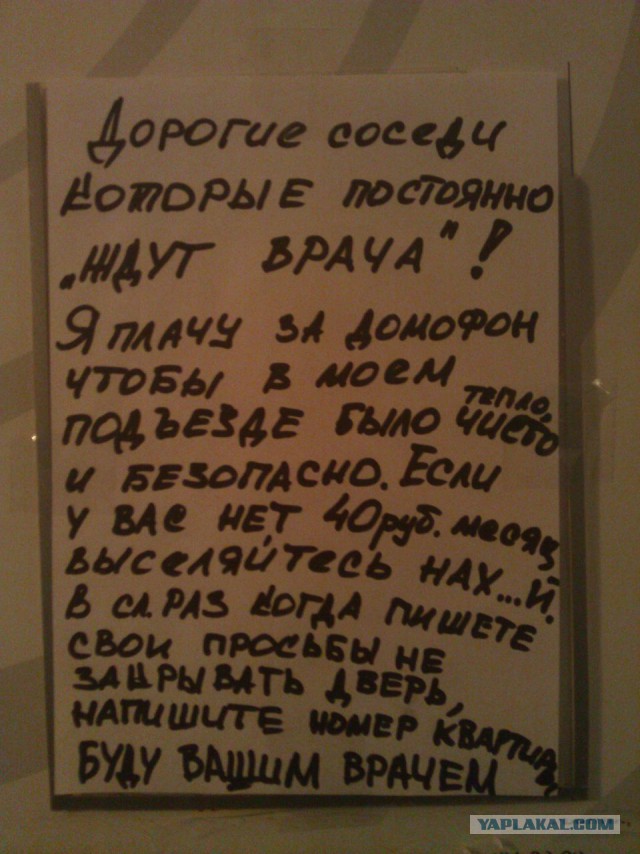 Дорогие соседи
которые постоянно
„ждут врача"!
Я плачу за домофон
чтобы в моем
подъезде было тепло, чисто
и безопасно. Если
у вас нет 40 руб. месяц
выселяйтесь нах...й.
В сл. раз когда пишете
свои просьбы не
закрывать дверь,
напишите номер квартиры,
буду вашим врачем
YAPLAKAL.COM